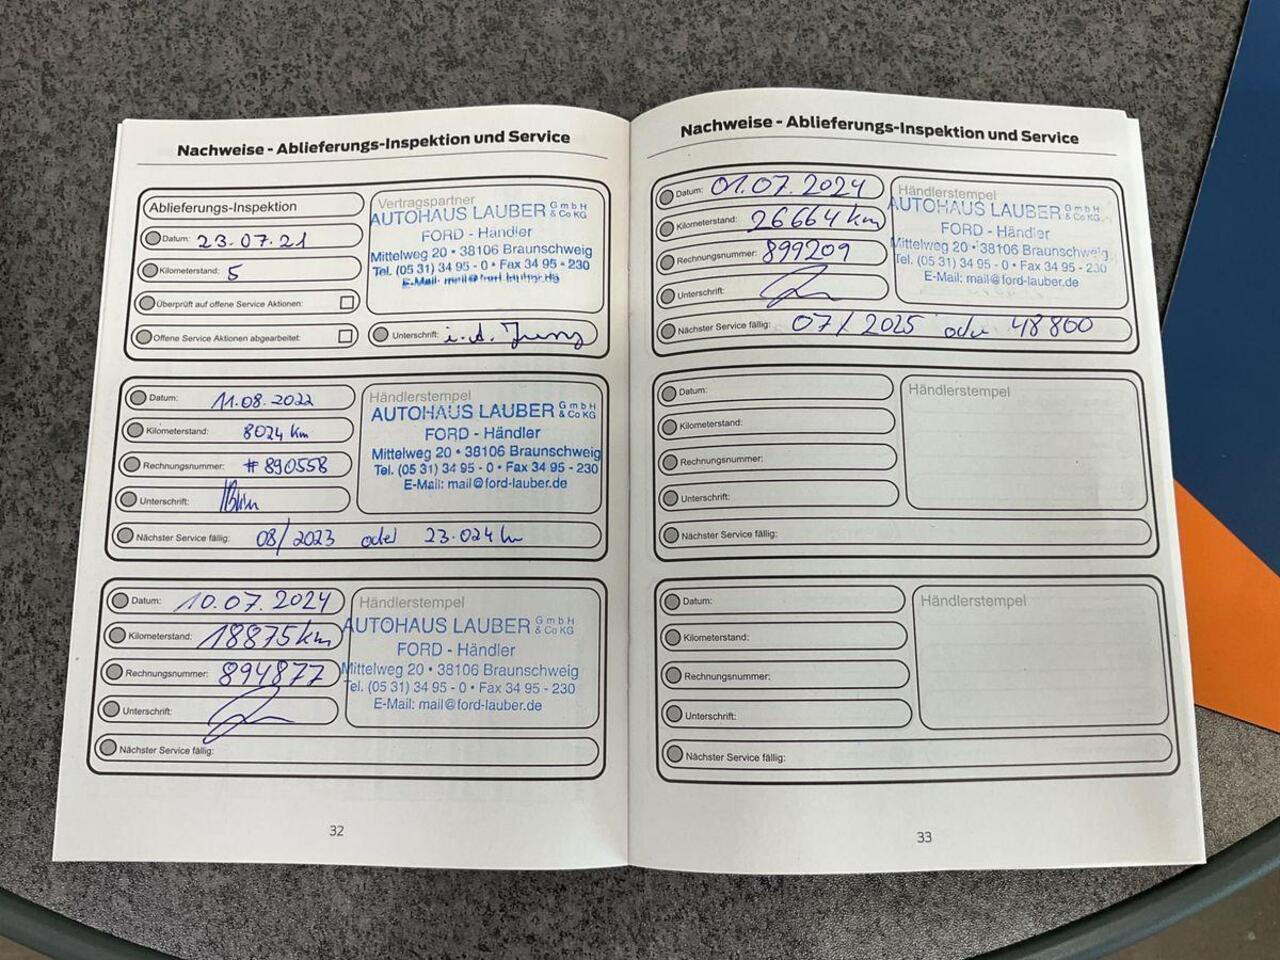 Nachweise - Ablieferungs-Inspektion und Service
Ablieferungs-Inspektion
Datum: 23.07.21
Kilometerstand: 5
Überprüft auf offene Service Aktionen:
Offene Service Aktionen abgearbeitet:
Vertragspartner
AUTOHAUS LAUBER GmbH & Co KG
FORD - Händler
Mittelweg 20 • 38106 Braunschweig
Tel. (05 31) 34 95 - 0 • Fax 34 95 - 230
E-Mail:
Unterschrift: i.A. Jung
Datum: 11.08.2022
Kilometerstand: 8024 km
Rechnungsnummer: #890558
Unterschrift:
Händlerstempel
AUTOHAUS LAUBER GmbH & Co KG
FORD - Händler
Mittelweg 20 • 38106 Braunschweig
Tel. (05 31) 34 95 - 0 • Fax 34 95 - 230
E-Mail: mail@ford-lauber.de
Nächster Service fällig: 08/2023 oder 23.024 km
Datum: 10.07.2024
Kilometerstand: 18875 km
Rechnungsnummer: 894877
Unterschrift:
Händlerstempel
AUTOHAUS LAUBER GmbH & Co KG
FORD - Händler
Mittelweg 20 • 38106 Braunschweig
Tel. (05 31) 34 95 - 0 • Fax 34 95 - 230
E-Mail: mail@ford-lauber.de
Nächster Service fällig:
32
Nachweise - Ablieferungs-Inspektion und Service
Datum: 01.07.2024
Kilometerstand: 26664 km
Rechnungsnummer: 899209
Unterschrift:
Händlerstempel
AUTOHAUS LAUBER GmbH & Co KG
FORD - Händler
Mittelweg 20 • 38106 Braunschweig
Tel. (05 31) 34 95 - 0 • Fax 34 95 - 230
E-Mail: mail@ford-lauber.de
Nächster Service fällig: 07/2025 oder 48800
Datum:
Kilometerstand:
Rechnungsnummer:
Unterschrift:
Händlerstempel
Nächster Service fällig:
Datum:
Kilometerstand:
Rechnungsnummer:
Unterschrift:
Händlerstempel
Nächster Service fällig:
33